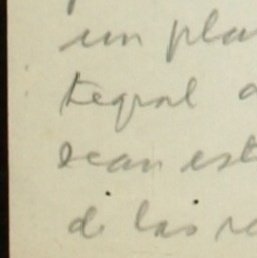 un pla
tegral a
sean est
de las re